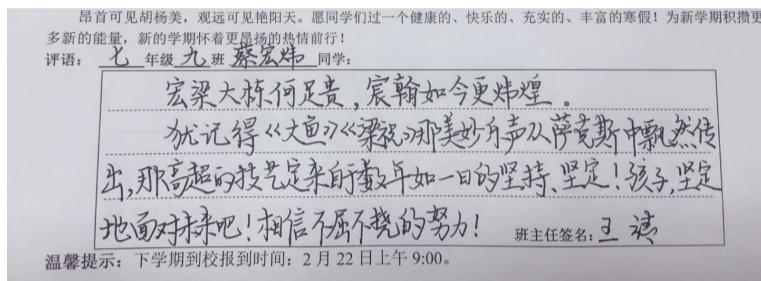 昂首可见胡杨美，观远可见艳阳天。愿同学们过一个健康的、快乐的、充实的、丰富的寒假！为新学期积攒更
多新的能量，新的学期怀着更昂扬的热情前行！
评语：七年级九班蔡宏炜同学：
宏梁大栋何足贵，宸翰如今更炜煌。
犹记得《大鱼》《梁祝》那美妙的声从萨克斯中飘然传
出，那高超的技艺定来自于数年如一日的坚持、坚定！孩子，坚定
地面对未来吧！相信不屈不挠的努力！
班主任签名：王
温馨提示：下学期到校报到时间：2月22日上午9:00。